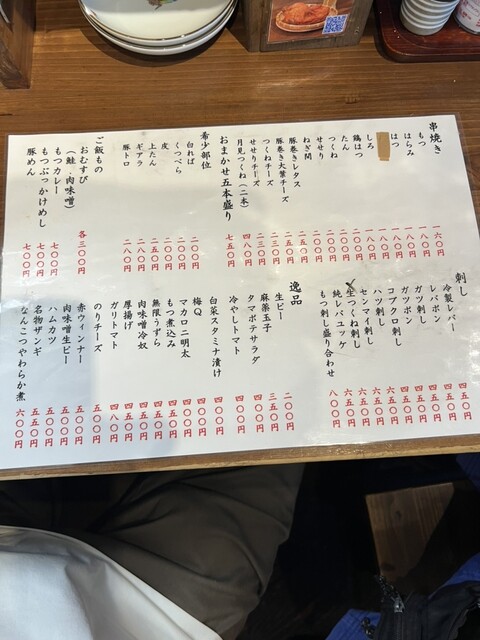 串焼き
もつ 一六〇円
はらみ 一八〇円
はつ 一八〇円
一八〇円
しろ 一八〇円
鶏はつ 一八〇円
たん 一八〇円
つくね 二〇〇円
せせり 二〇〇円
ねぎ間 二〇〇円
豚巻きレタス 二五〇円
豚巻き大葉チーズ 二五〇円
つくねチーズ 二三〇円
せせりチーズ 二三〇円
月見つくね(二本)
おまかせ五本盛り 七五〇円
希少部位
白れば 二〇〇円
くつべら 二〇〇円
皮 二〇〇円
上たん 二五〇円
ギアラ 二八〇円
豚トロ 二八〇円
ご飯もの
おむすび
(鮭・肉味噌) 各三〇〇円
もつカレー 七〇〇円
もつぶっかけめし 七〇〇円
豚めん 三〇〇円
刺し
冷製レバー 四五〇円
レバポン 四五〇円
ガツ刺し 四五〇円
ガツポン 四五〇円
コブクロ刺し
ハツ刺し
センマイ刺し
生つくね刺し 六五〇円
純レバユッケ 六五〇円
もつ刺し盛り合わせ 八〇〇円
逸品
生ピー 二〇〇円
麻薬玉子 三五〇円
タマポテサラダ 四五〇円
冷やしトマト 四〇〇円
白菜スタミナ漬け 四〇〇円
梅Q 四〇〇円
マカロニ明太 四五〇円
もつ煮込み 四五〇円
無限うずら 五五〇円
肉味噌冷奴 四五〇円
厚揚げ 四五〇円
ガリトマト 四八〇円
のりチーズ 五五〇円
赤ウィンナー 五五〇円
肉味噌生ピー 五五〇円
ハムカツ 五〇〇円
名物ザンギ 五五〇円
なんこつやわらか煮 六〇〇円